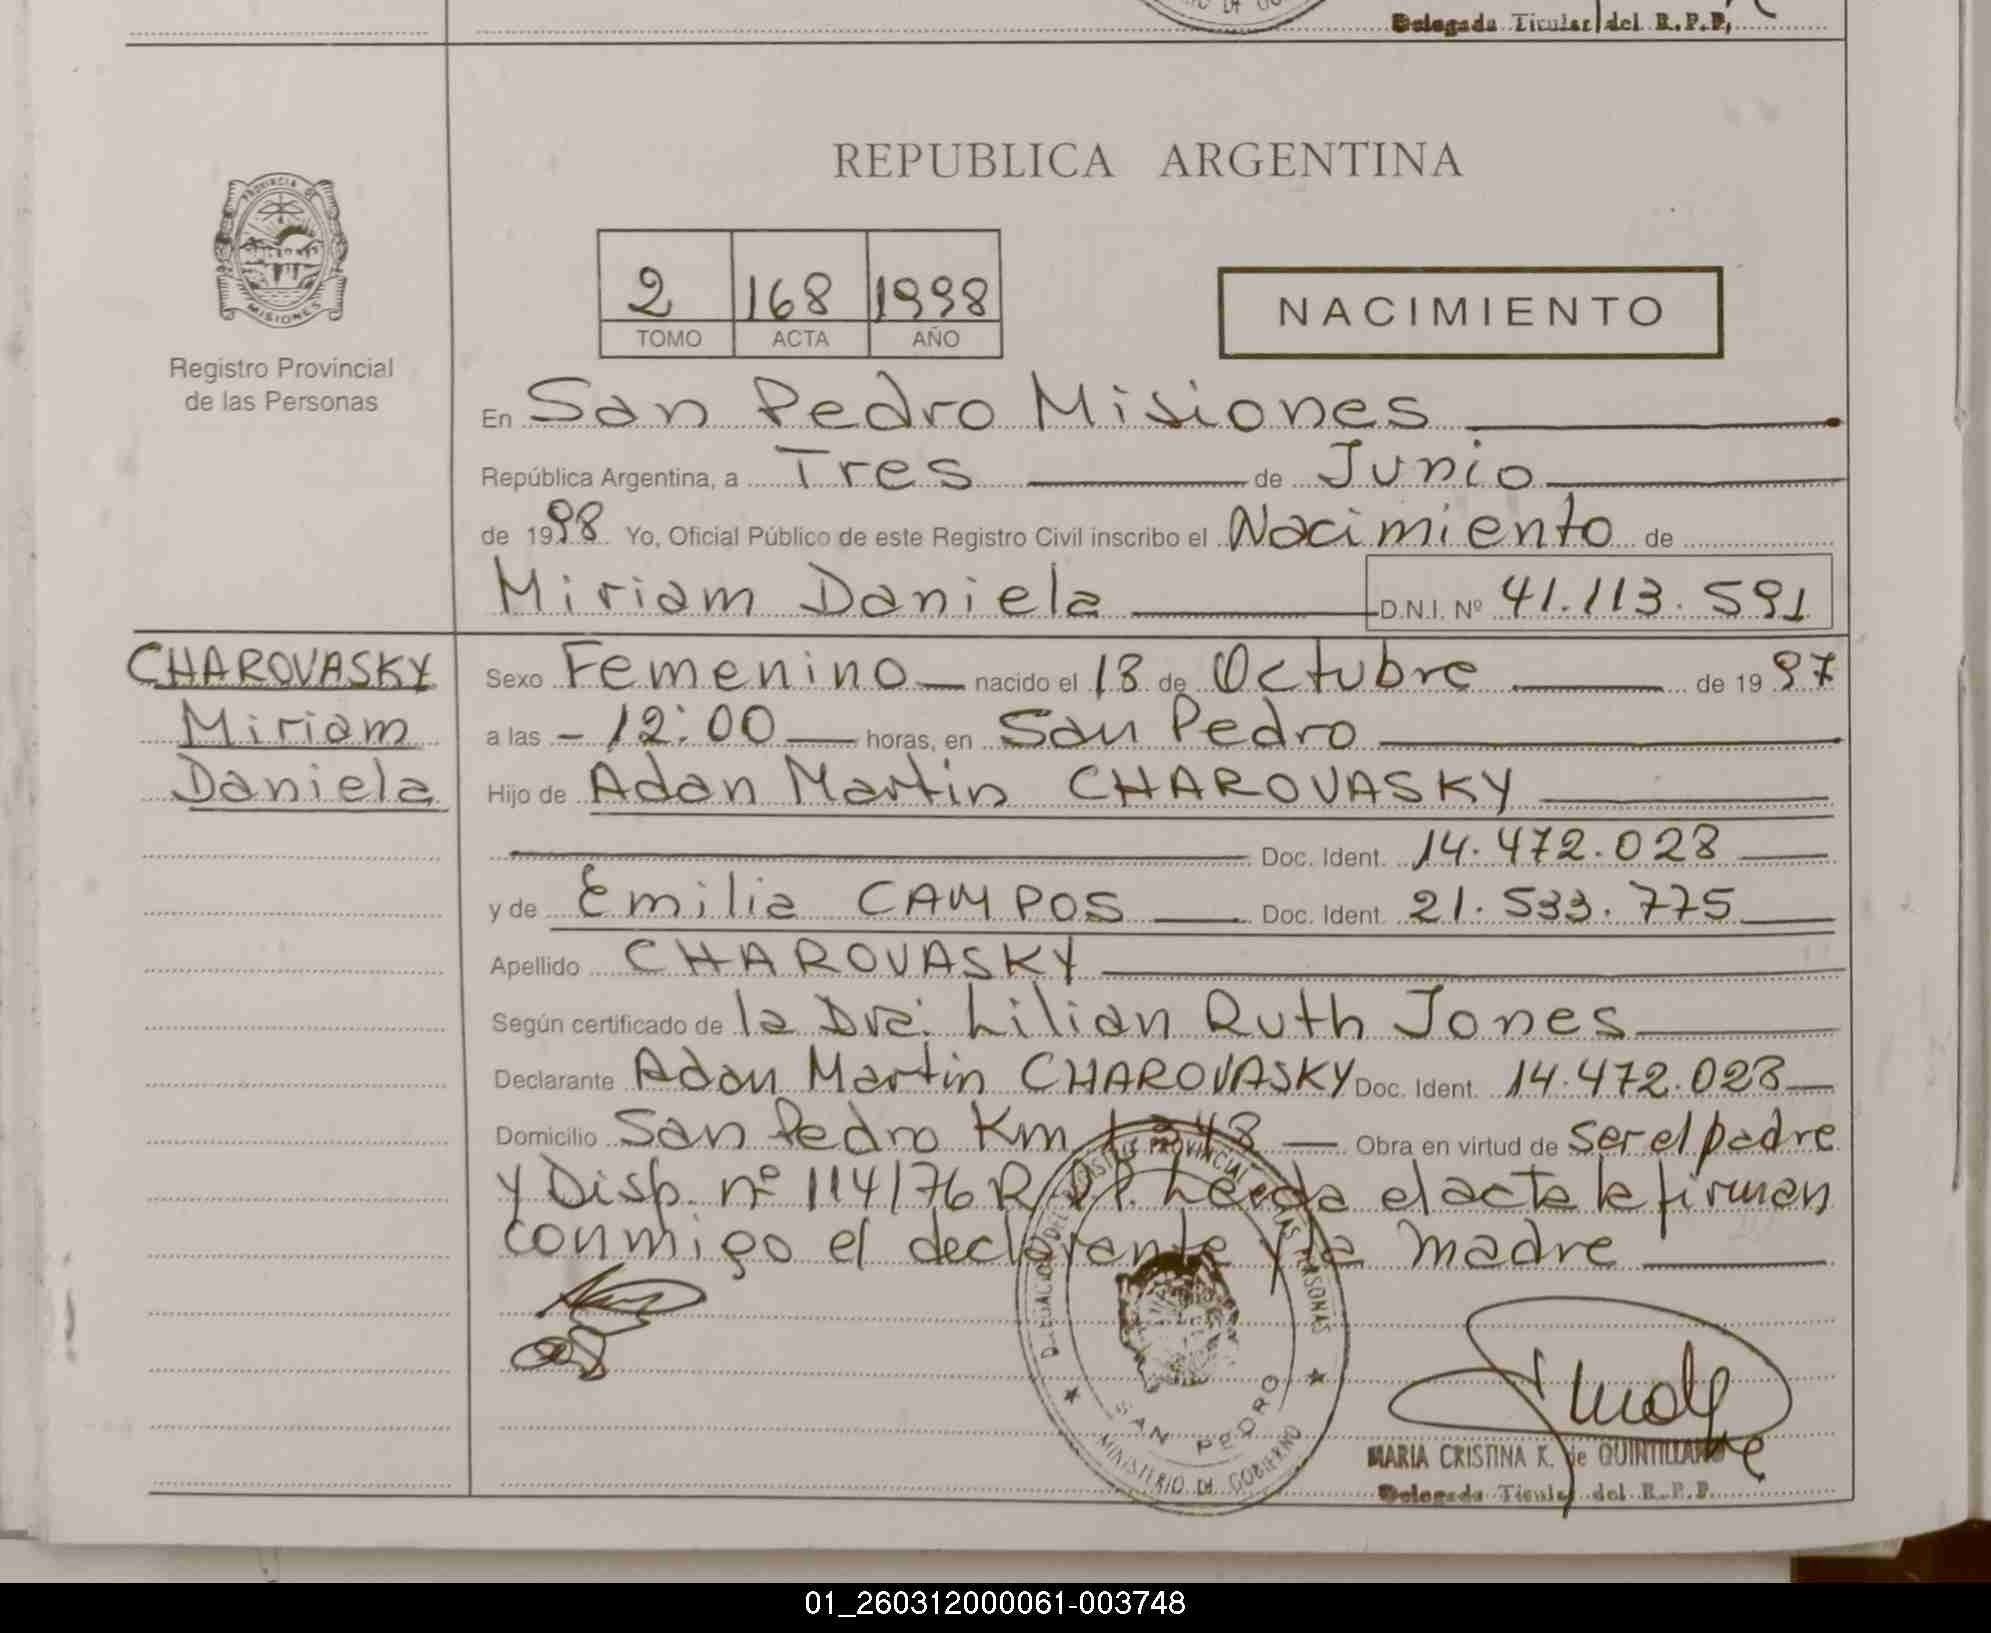 Delegada Titular del R.P.P.
REPUBLICA ARGENTINA
PROVINCIA DE
MISIONES
Registro Provincial
de las Personas
2 168 1998
TOMO ACTA AÑO
NACIMIENTO
En San Pedro Misiones
República Argentina, a Tres de Junio
de 1998 Yo, Oficial Público de este Registro Civil inscribo el Nacimiento de
Miriam Daniela D.N.I. Nº 41.113.591
CHAROVASKY
Miriam
Daniela
Sexo Femenino nacido el 18 de Octubre de 1997
a las - 12:00 horas, en San Pedro
Hijo de Adan Martin CHAROVASKY
Doc. Ident. 14.472.028
y de Emilia CAMPOS Doc. Ident. 21.533.775
Apellido CHAROVASKY
Según certificado de la Dra. Lilian Ruth Jones
Declarante Adan Martin CHAROVASKY Doc. Ident. 14.472.028
Domicilio San Pedro Km 1348 Obra en virtud de ser el padre
y Disp. nº 114/76 R.P.P. Leida el acta la firman
conmigo el declarante y la madre
DELEGACION DEL REGISTRO PROVINCIAL DE LAS PERSONAS
SAN PEDRO
MINISTERIO DE GOBIERNO
MARIA CRISTINA K. de QUINTILLAN
Delegada Titular del R.P.P.
01_260312000061-003748